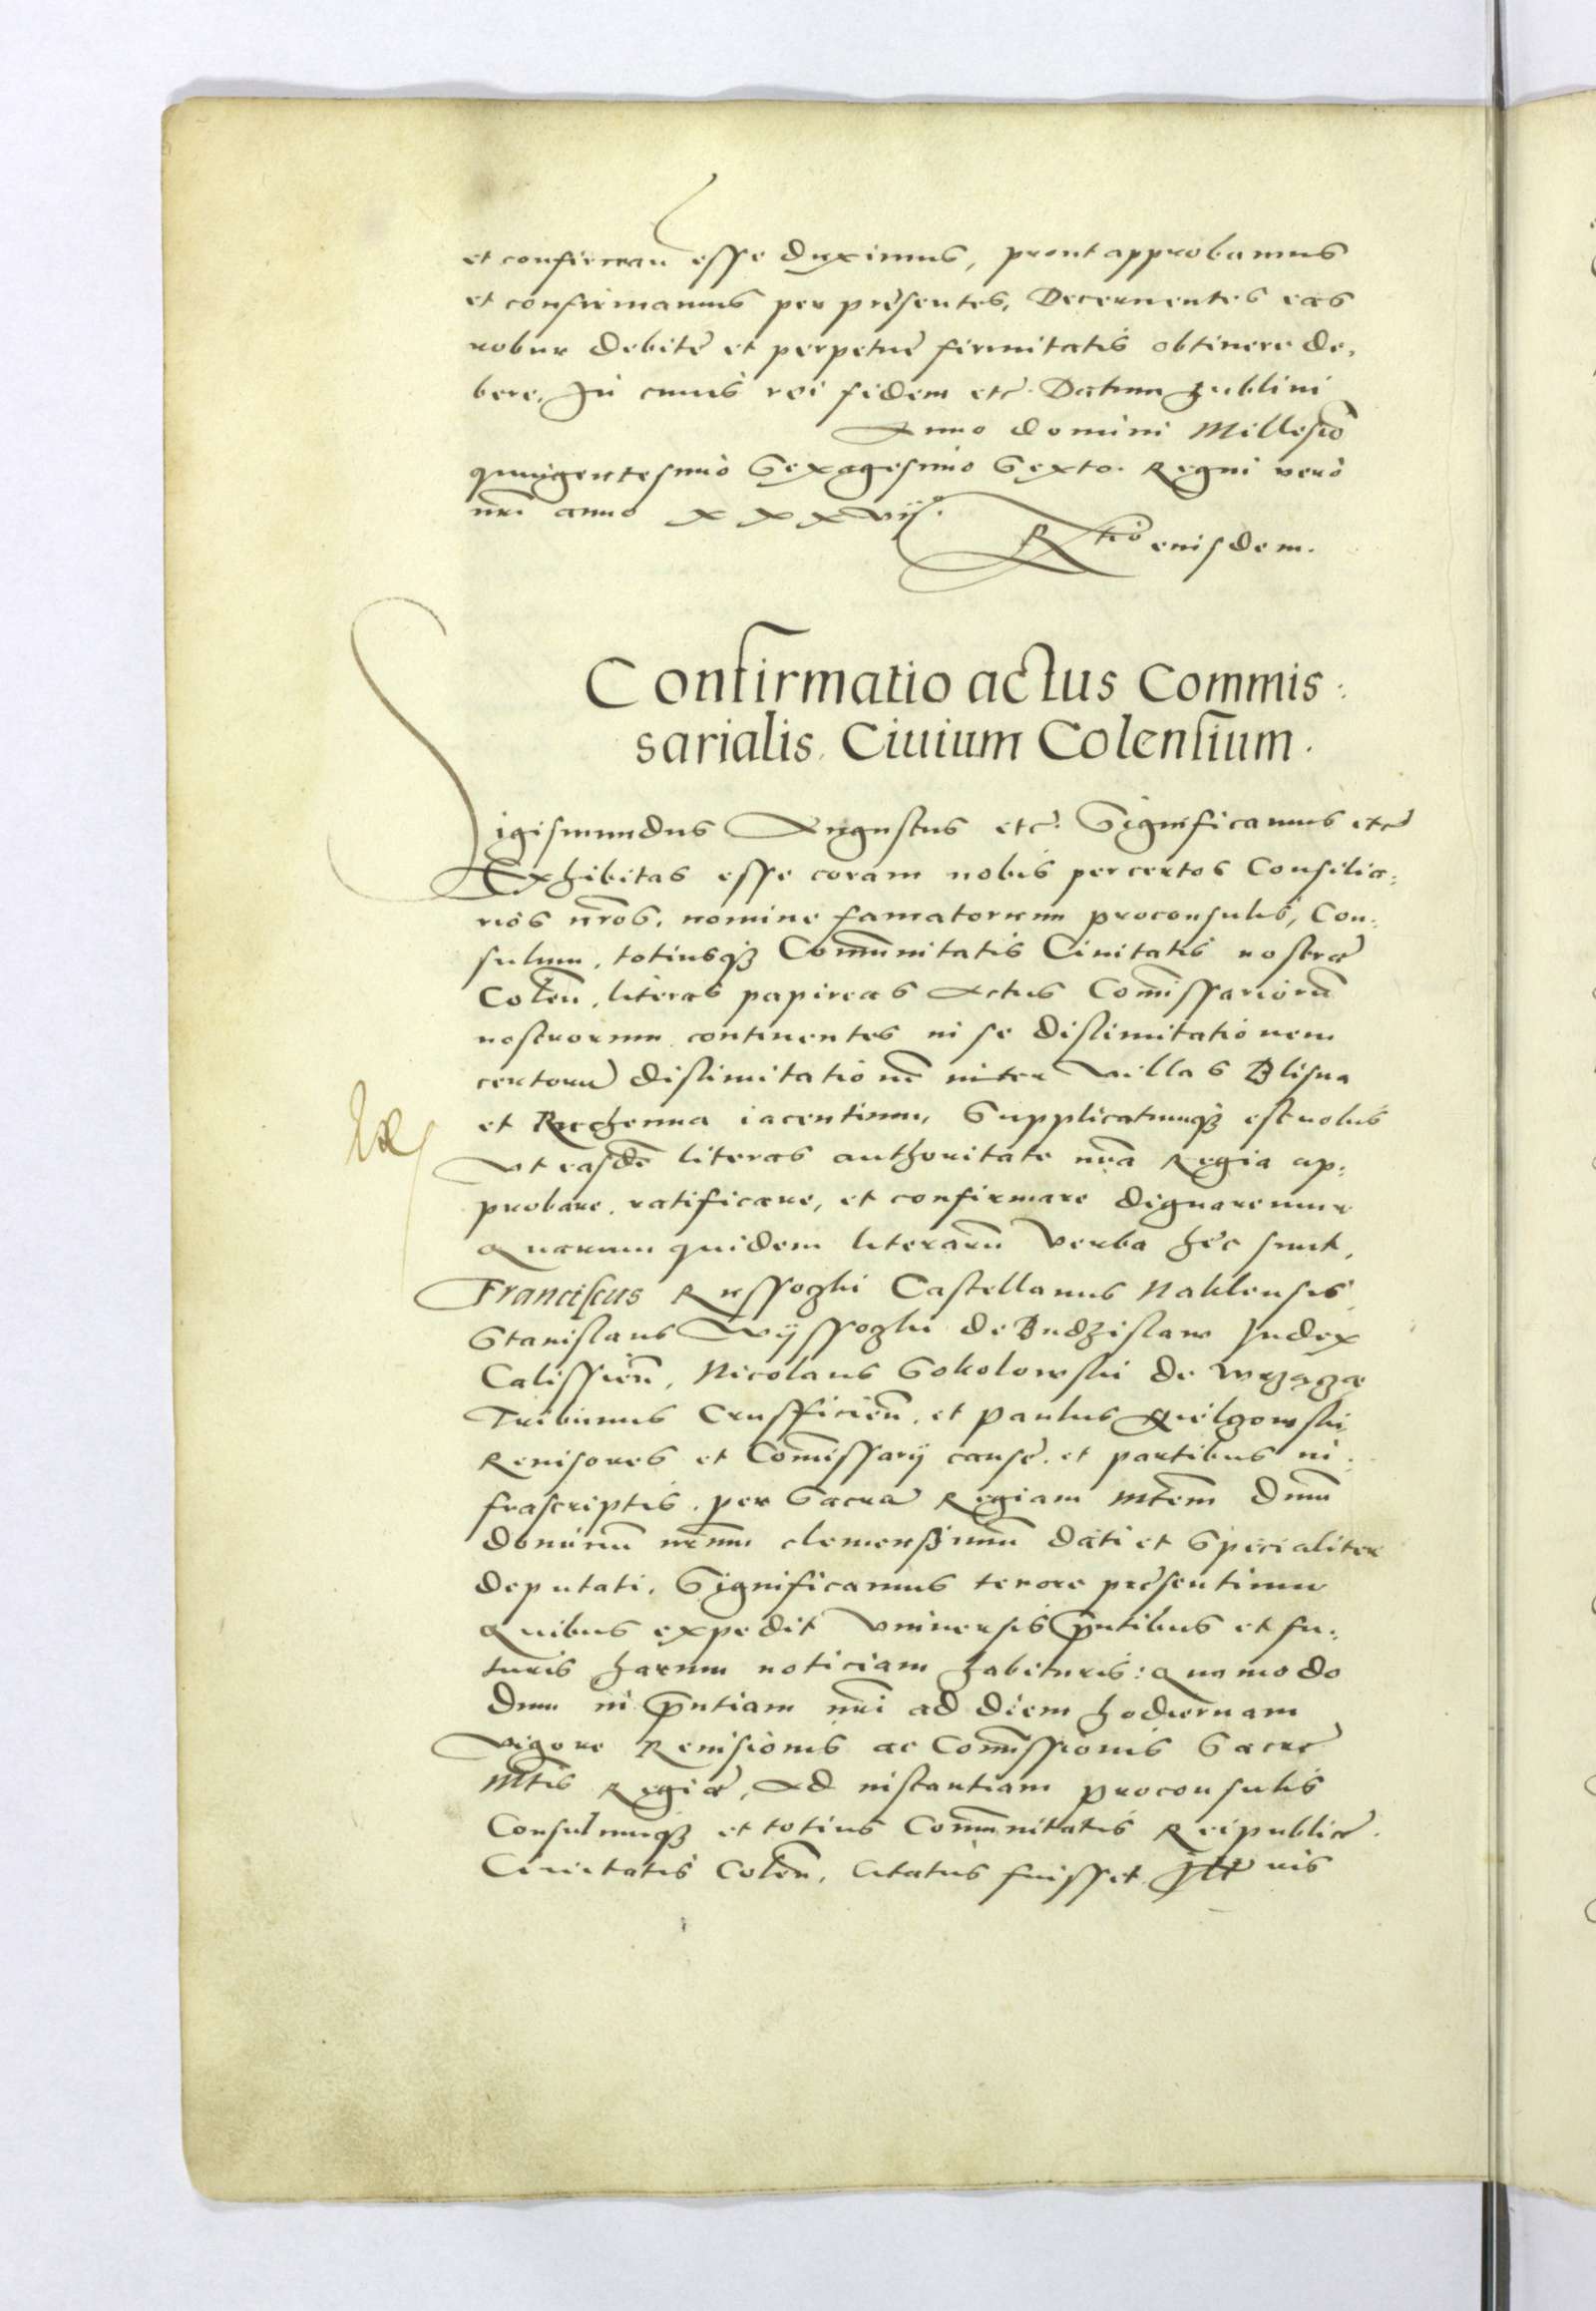 et confirman esse duximus, prout approbamus
et confirmamus per pręsentes, Decernentes eas
robur debitę et perpetuę firmitatis obtinere de,
bere. In cuius rei fidem etc. Datum Lublini
Anno domini Millesio
quingentesimo Sexagesimo Sexto. Regni vero
nri anno XXXvij.
Rtio eiusdem.
Confirmatio actus Commis:
sarialis Ciuium Colensium.
Sigismundus Augustus etc. Significamus etc
Exhibitas esse coram nobis per certos Consilia:
rios nros, nomine famatorum proconsulis, Con:
sulum, totiusq3 Communitatis Ciuitatis nostræ
Colen, literas papireas Actus Comissariorũ
nostrorum continentes in se dislimitationem
certorũ dislimitationũ inter villas Blisna
et Ruchenna iacentium, Supplicatumq3 est nobis
Vt easdẽ literas authoritate nra Regia ap:
probare, ratificare, et confirmare dignaremur
Quarum quidem literarũ verba hęc sunt,
Franciscus Russoczki Castellanus Naklensis,
Stanislaus Wyssoczki de Budzislaw Judex
Calissien, Nicolaus Sokolowski de Wrzącza
Tribunus Crussficien, et Paulus
Reuisores et Comissarij causę et partibus in:
frascriptis per Sacrã Regiam Mtem Dnum
dominũ nrum clemenssimũ dati et Specialiter
deputati, Significamus tenore pręsentium
Quibus expedit vniuersis pntibus et fu:
turis harum noticiam habituris: Quomodo
dum in pntiam nri ad diem hodiernam
vigore Reuisionis ac Comissionis Sacrę
Mtis Regiæ, Ad instantiam proconsulis
Consulumq3 et totius Communitatis Reipublicæ
Ciuitatis Colen, citatus fuisset